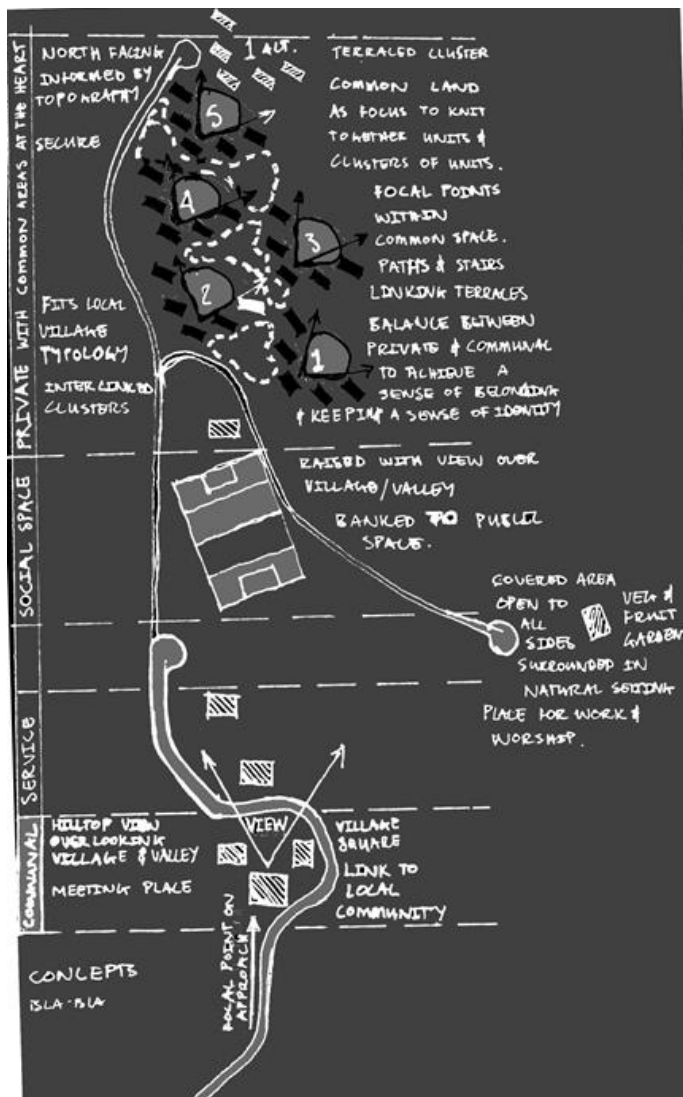 PRIVATE WITH COMMON AREAS AT THE HEART
SOCIAL SPACE
SERVICE
COMMUNAL
NORTH FACING
INFORMED BY
TOPOGRAPHY
SECURE
FITS LOCAL
VILLAGE
TYPOLOGY
INTERLINKED
CLUSTERS
1 ALT.
5
4
3
2
1
TERRACED CLUSTER
COMMON LAND
AS FOCUS TO KNIT
TOGETHER UNITS &
CLUSTERS OF UNITS.
FOCAL POINTS
WITHIN
COMMON SPACE.
PATHS & STAIRS
LINKING TERRACES
BALANCE BETWEEN
PRIVATE & COMMUNAL
TO ACHIEVE A
SENSE OF BELONGING
& KEEPING A SENSE OF IDENTITY
RAISED WITH VIEW OVER
VILLAGE/VALLEY
BANKED TO PUBLIC
SPACE.
COVERED AREA
OPEN TO
ALL
SIDES
SURROUNDED IN
NATURAL SETTING
PLACE FOR WORK &
WORSHIP.
VEG &
FRUIT
GARDEN
HILLTOP VIEW
OVERLOOKING
VILLAGE & VALLEY
MEETING PLACE
VIEW
VILLAGE
SQUARE
LINK TO
LOCAL
COMMUNITY
FOCAL POINT ON
APPROACH
CONCEPTS
ISLA-ISLA